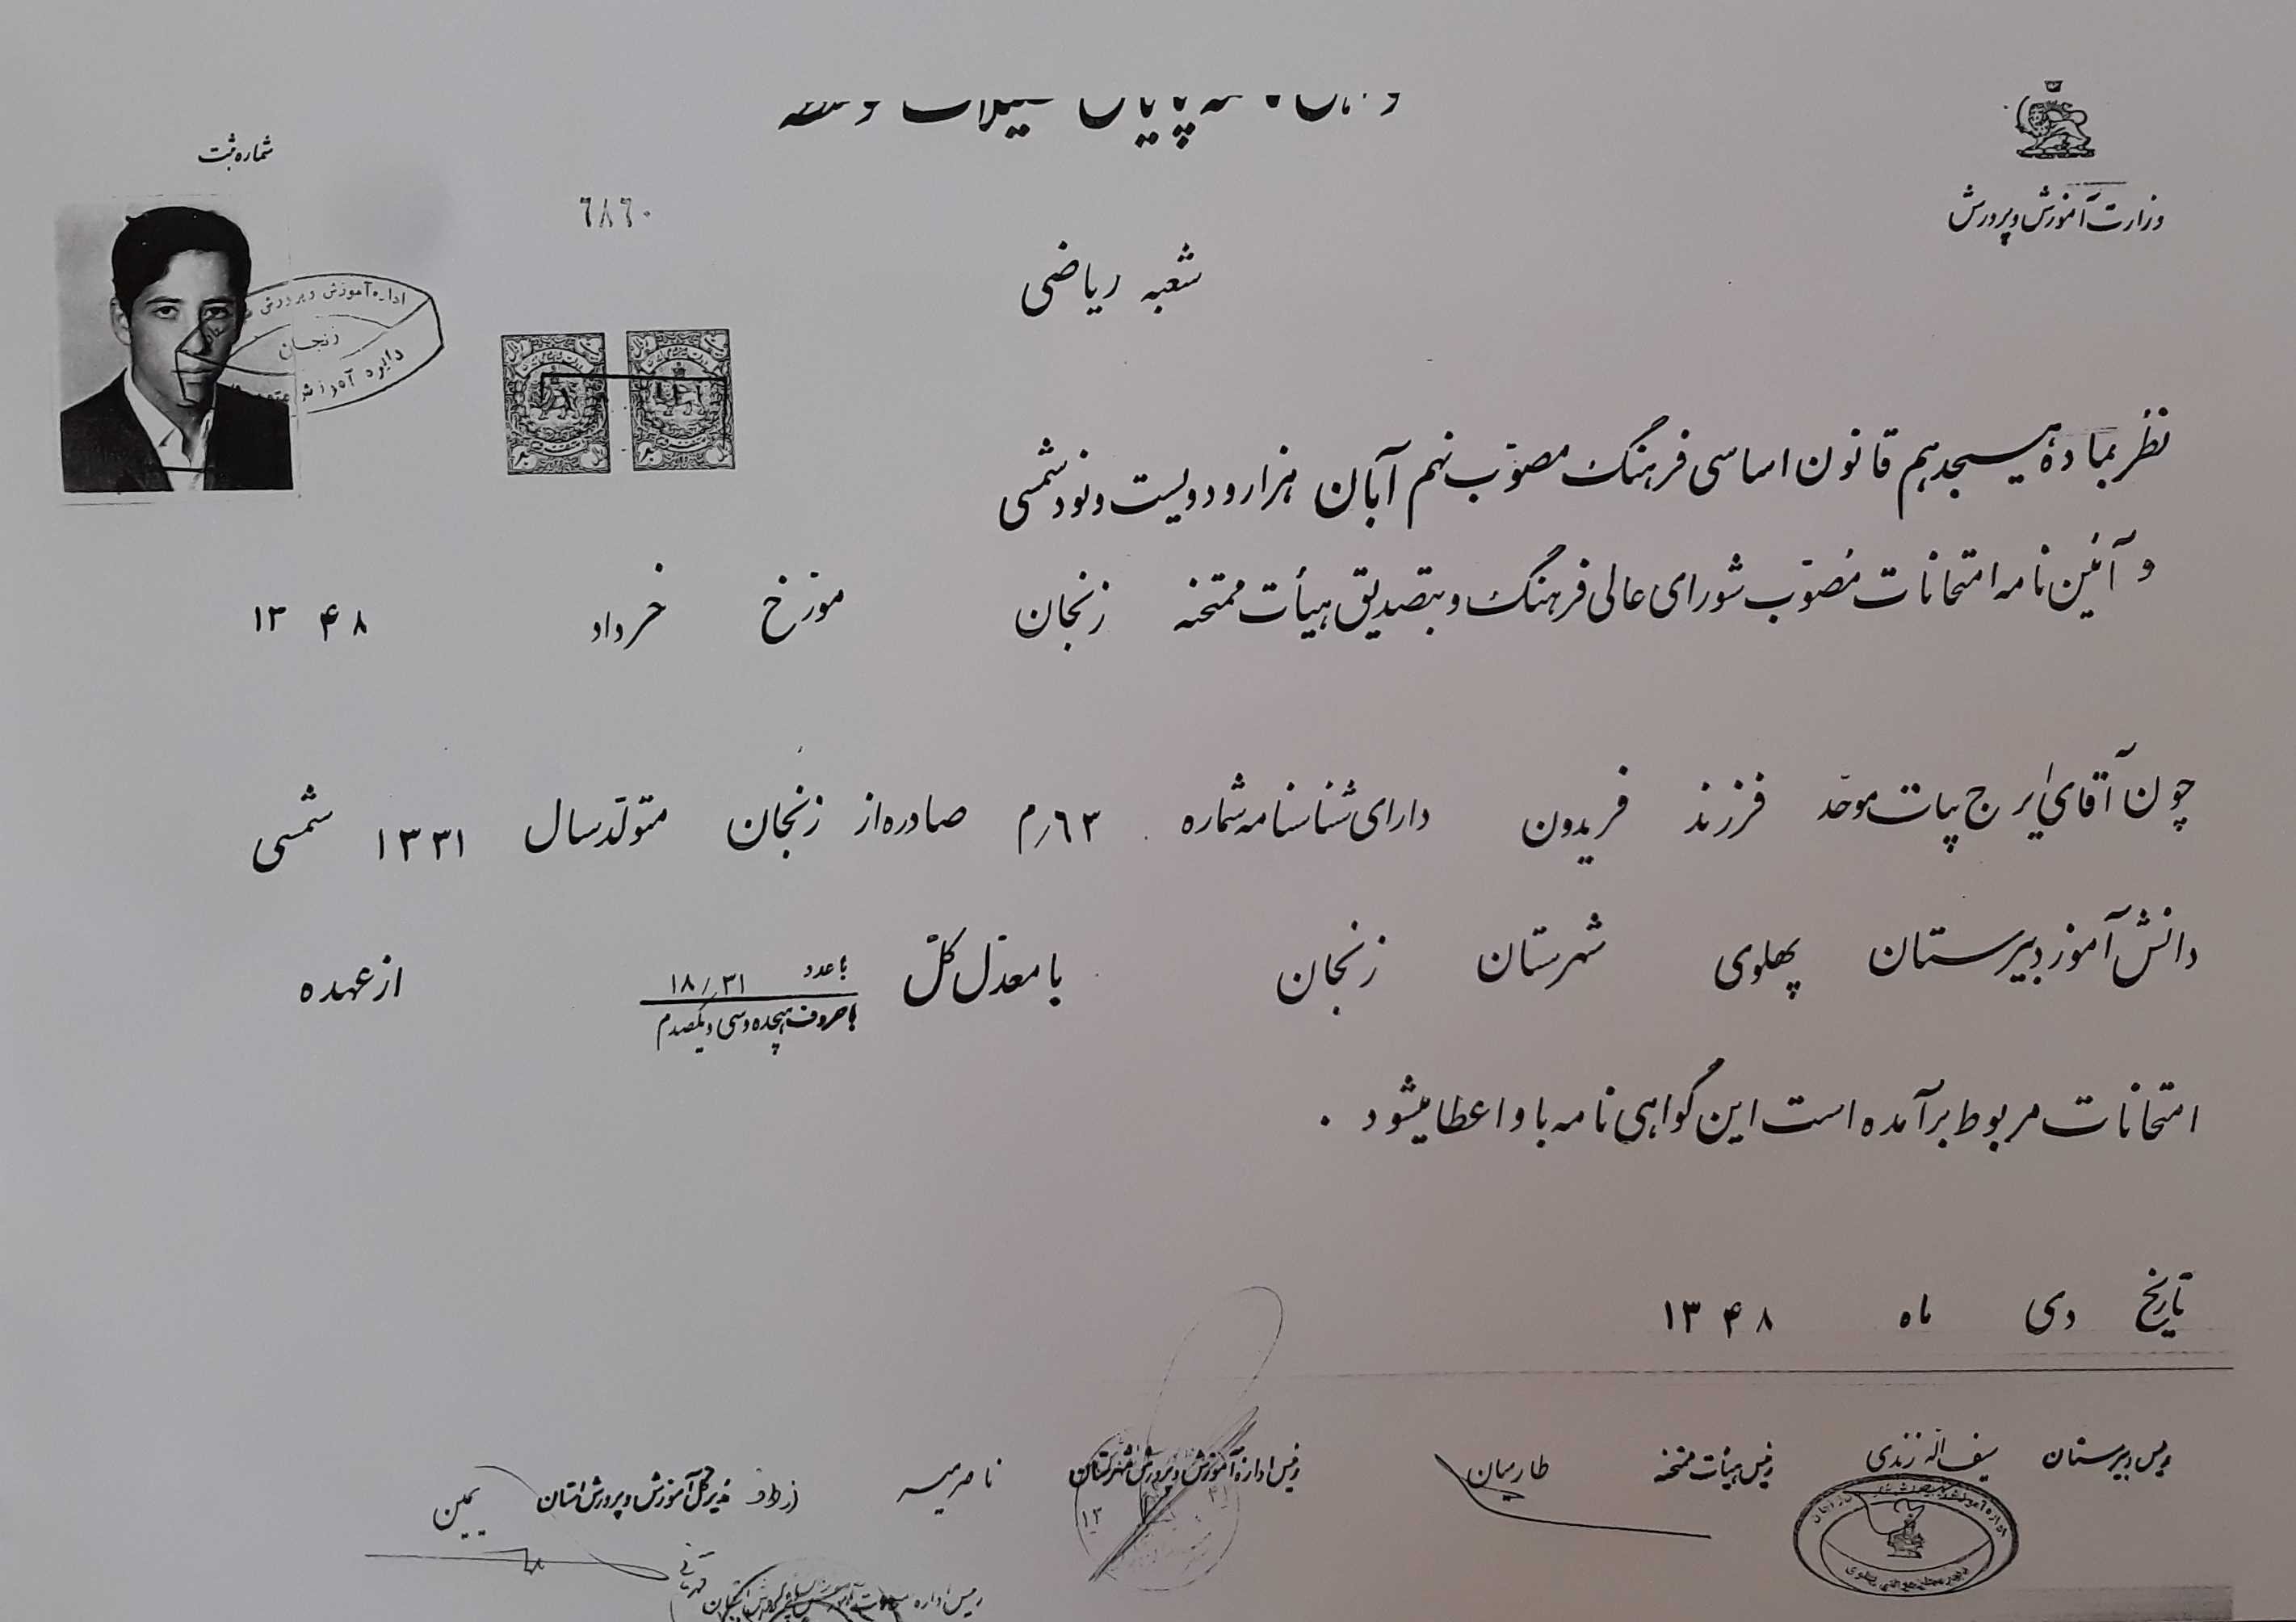 پایان
وزارت آموزش و پرورش
شماره ثبت
٦٨٦٠
شعبه ریاضی
اداره آموزش و پرورش
زنجان
دایره آموزش
نظر بماده هیجدهم قانون اساسی فرهنگ مصوّب نهم آبان هزار و دویست و نود شمسی
و آئین نامه امتحانات مصوّب شورای عالی فرهنگ و بتصدیق هیأت ممتحنه زنجان مورّخ خرداد ۱۳۴۸
چون آقای ایرج بیات موحّد فرزند فریدون دارای شناسنامه شماره ٦۳/م صادره از زنجان متولّد سال ۱۳۳۱ شمسی
دانش آموز دبیرستان پهلوی شهرستان زنجان با معدّل کلّ باعدد ۱۸/۳۱ باحروف هیجده و سی و یکصدم از عهده
امتحانات مربوط برآمده است این گواهی نامه باو اعطا میشود .
تاریخ دی ماه ۱۳۴۸
رئیس دبیرستان سیف اله زندی رئیس هیئات ممتحنه طارمیان رئیس اداره آموزش و پرورش شهرستان ناصر مدیر کل آموزش و پرورش استان
رئیس اداره